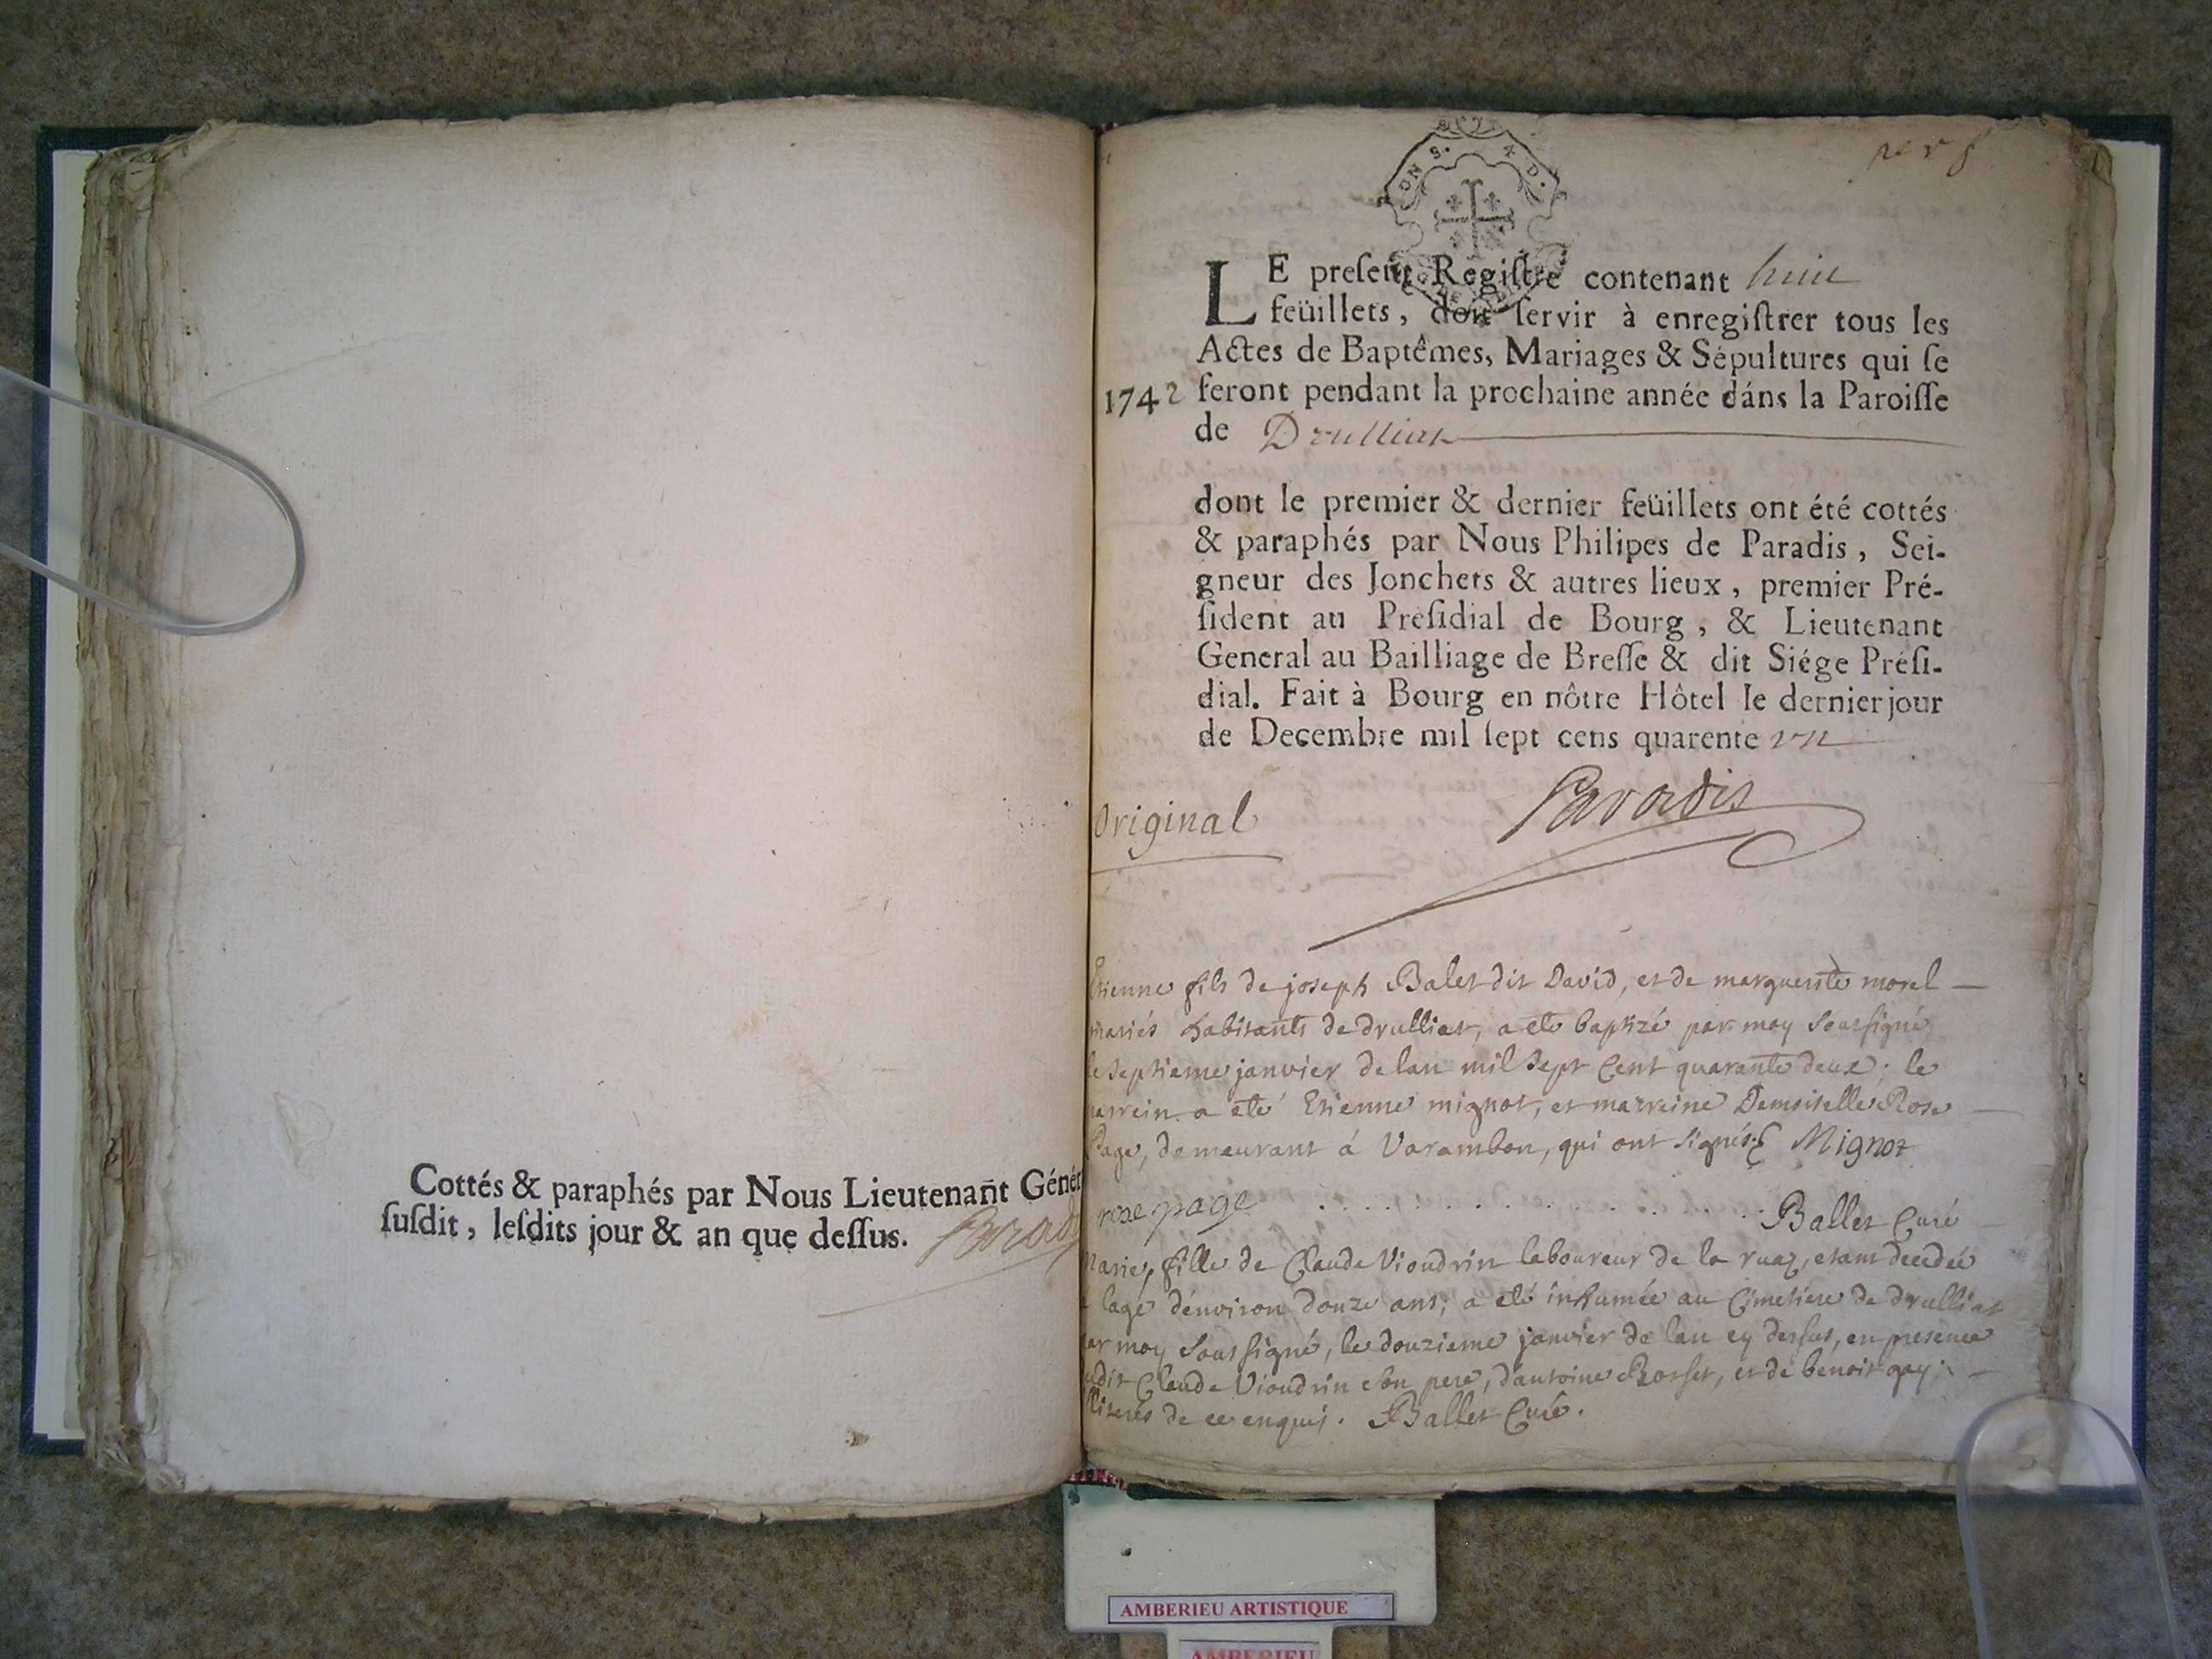 Cottés & paraphés par Nous Lieutenant Génér
susdit, lesdits jour & an que dessus.
LE present Registre contenant huit
feüillets, doit servir à enregistrer tous les
Actes de Baptêmes, Mariages & Sépultures qui se
1742 feront pendant la prochaine année dans la Paroisse
de Drulliat
dont le premier & dernier feüillets ont été cottés
& paraphés par Nous Philipes de Paradis, Sei-
gneur des Jonchets & autres lieux, premier Pré-
sident au Présidial de Bourg, & Lieutenant
General au Bailliage de Bresse & dit Siége Prési-
dial. Fait à Bourg en nôtre Hôtel le dernier jour
de Decembre mil sept cens quarente un
Original Paradis
Etienne fils de joseph Balet dit David, et de marguerite morel
mariés habitants de drulliat, a eté baptizé par moy soussigné
le septieme janvier de lan mil sept cent quarante deux; le
parrein a eté Etienne mignot, et marreine Demoiselle Rose
Page, demeurant á Varambon, qui ont signés. E Mignot
rose page Ballet Curé
Marie, fille de Claude Vioudrin laboureur de la ruaz, etant decedée
a lage d'environ douze ans; a eté inhumée au Cimetiere de drulliat
par moy soussigné, le douzieme janvier de lan cy dessus, en presence
dudit Claude Vioudrin son pere, d'antoine Rosset, et de benoit gay;
illiterés de ce enquis. Ballet Curé.
AMBERIEU ARTISTIQUE
AMBERIEU